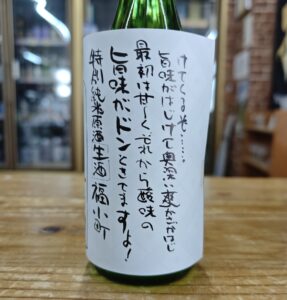 けてくるぞ……。
旨味がはじけて奥深い
最初は甘〜くそれから酸味の
旨味がドンときてますよ!
特別純米原酒「生酒」福小町